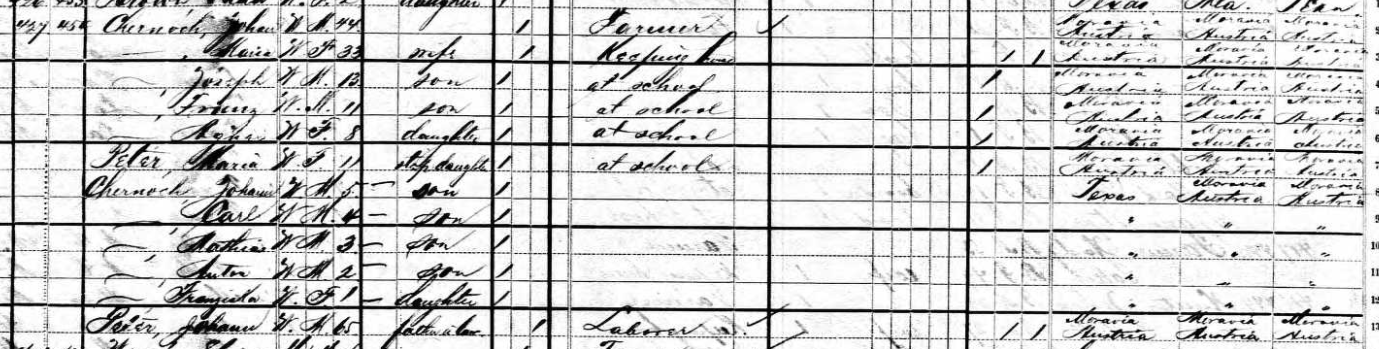 daughter Texas
427 Chernoch, Johann W. M. 44 1 Farmer Moravia Austria Moravia Austria Moravia Austria 2
—, Maria W F 33 wife 1 Keeping house 1 1 Moravia Austria Moravia Austria Moravia Austria 3
—, Joseph W. M. 13 son 1 at school 1 Moravia Austria Moravia Austria Moravia Austria 4
—, Franz W. M. 11 son 1 at school 1 Moravia Austria Moravia Austria Moravia Austria 5
—, W F. 8 daughter 1 at school 1 Moravia Austria Moravia Austria Moravia Austria 6
Peter, Maria W. F 11 step daughter 1 at school 1 Moravia Austria Moravia Austria Moravia Austria 7
Chernoch, Johann W M. 5 — son 1 Texas Moravia Austria Moravia Austria 8
—, Carl W. M. 4 — son 1 " " " 9
—, Mathias W M. 3 — son 1 " " " 10
—, Anton W M 2 — son 1 " " " 11
—, Franziska W. F 1 — daughter 1 " " " 12
Peter, Johann W. M. 65 father in law 1 Laborer 1 1 Moravia Austria Moravia Austria Moravia Austria 13